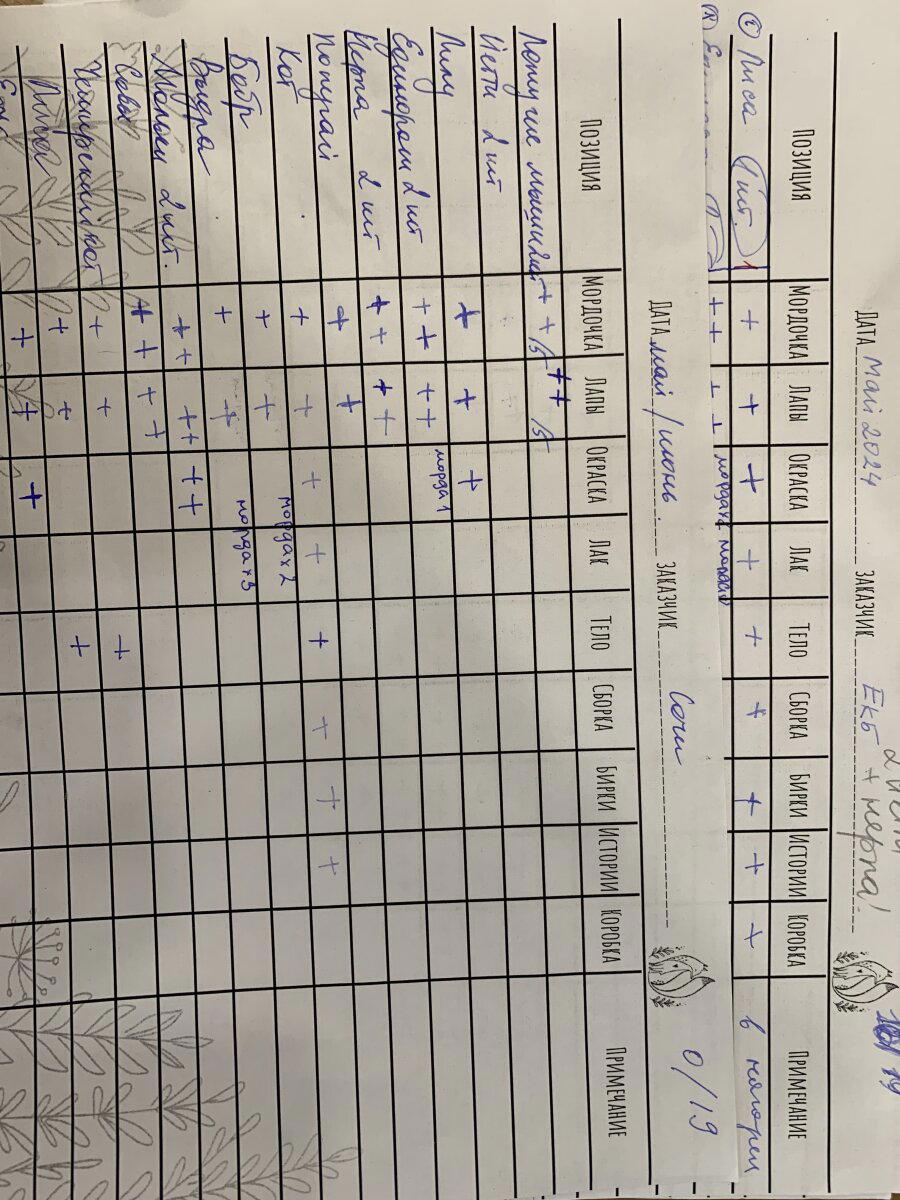 2 йети
ДАТА май 2024 ЗАКАЗЧИК ЕКБ + нерпа! 19
ПОЗИЦИЯ МОРДОЧКА ЛАПЫ ОКРАСКА ЛАК ТЕЛО СБОРКА БИРКИ ИСТОРИИ КОРОБКА ПРИМЕЧАНИЕ
Лиса 1 шт. + + + + + + + + + в
+ + + + морда
ДАТА май/июнь. ЗАКАЗЧИК Сочи 0/19
ПОЗИЦИЯ МОРДОЧКА ЛАПЫ ОКРАСКА ЛАК ТЕЛО СБОРКА БИРКИ ИСТОРИИ КОРОБКА ПРИМЕЧАНИЕ
Летучие мыши + + + +
Йети 2 шт
+ + +
Единороги 2 шт + + + + морда 1
Нерпа 2 шт + + + +
Попугай + +
Кот + + + + + + + +
Бобр + + морда х 2
Выдра + + морда х 3
2 шт. + + + + + +
Сова + + + +
Чеширский кот + + +
+ + +
+ + +